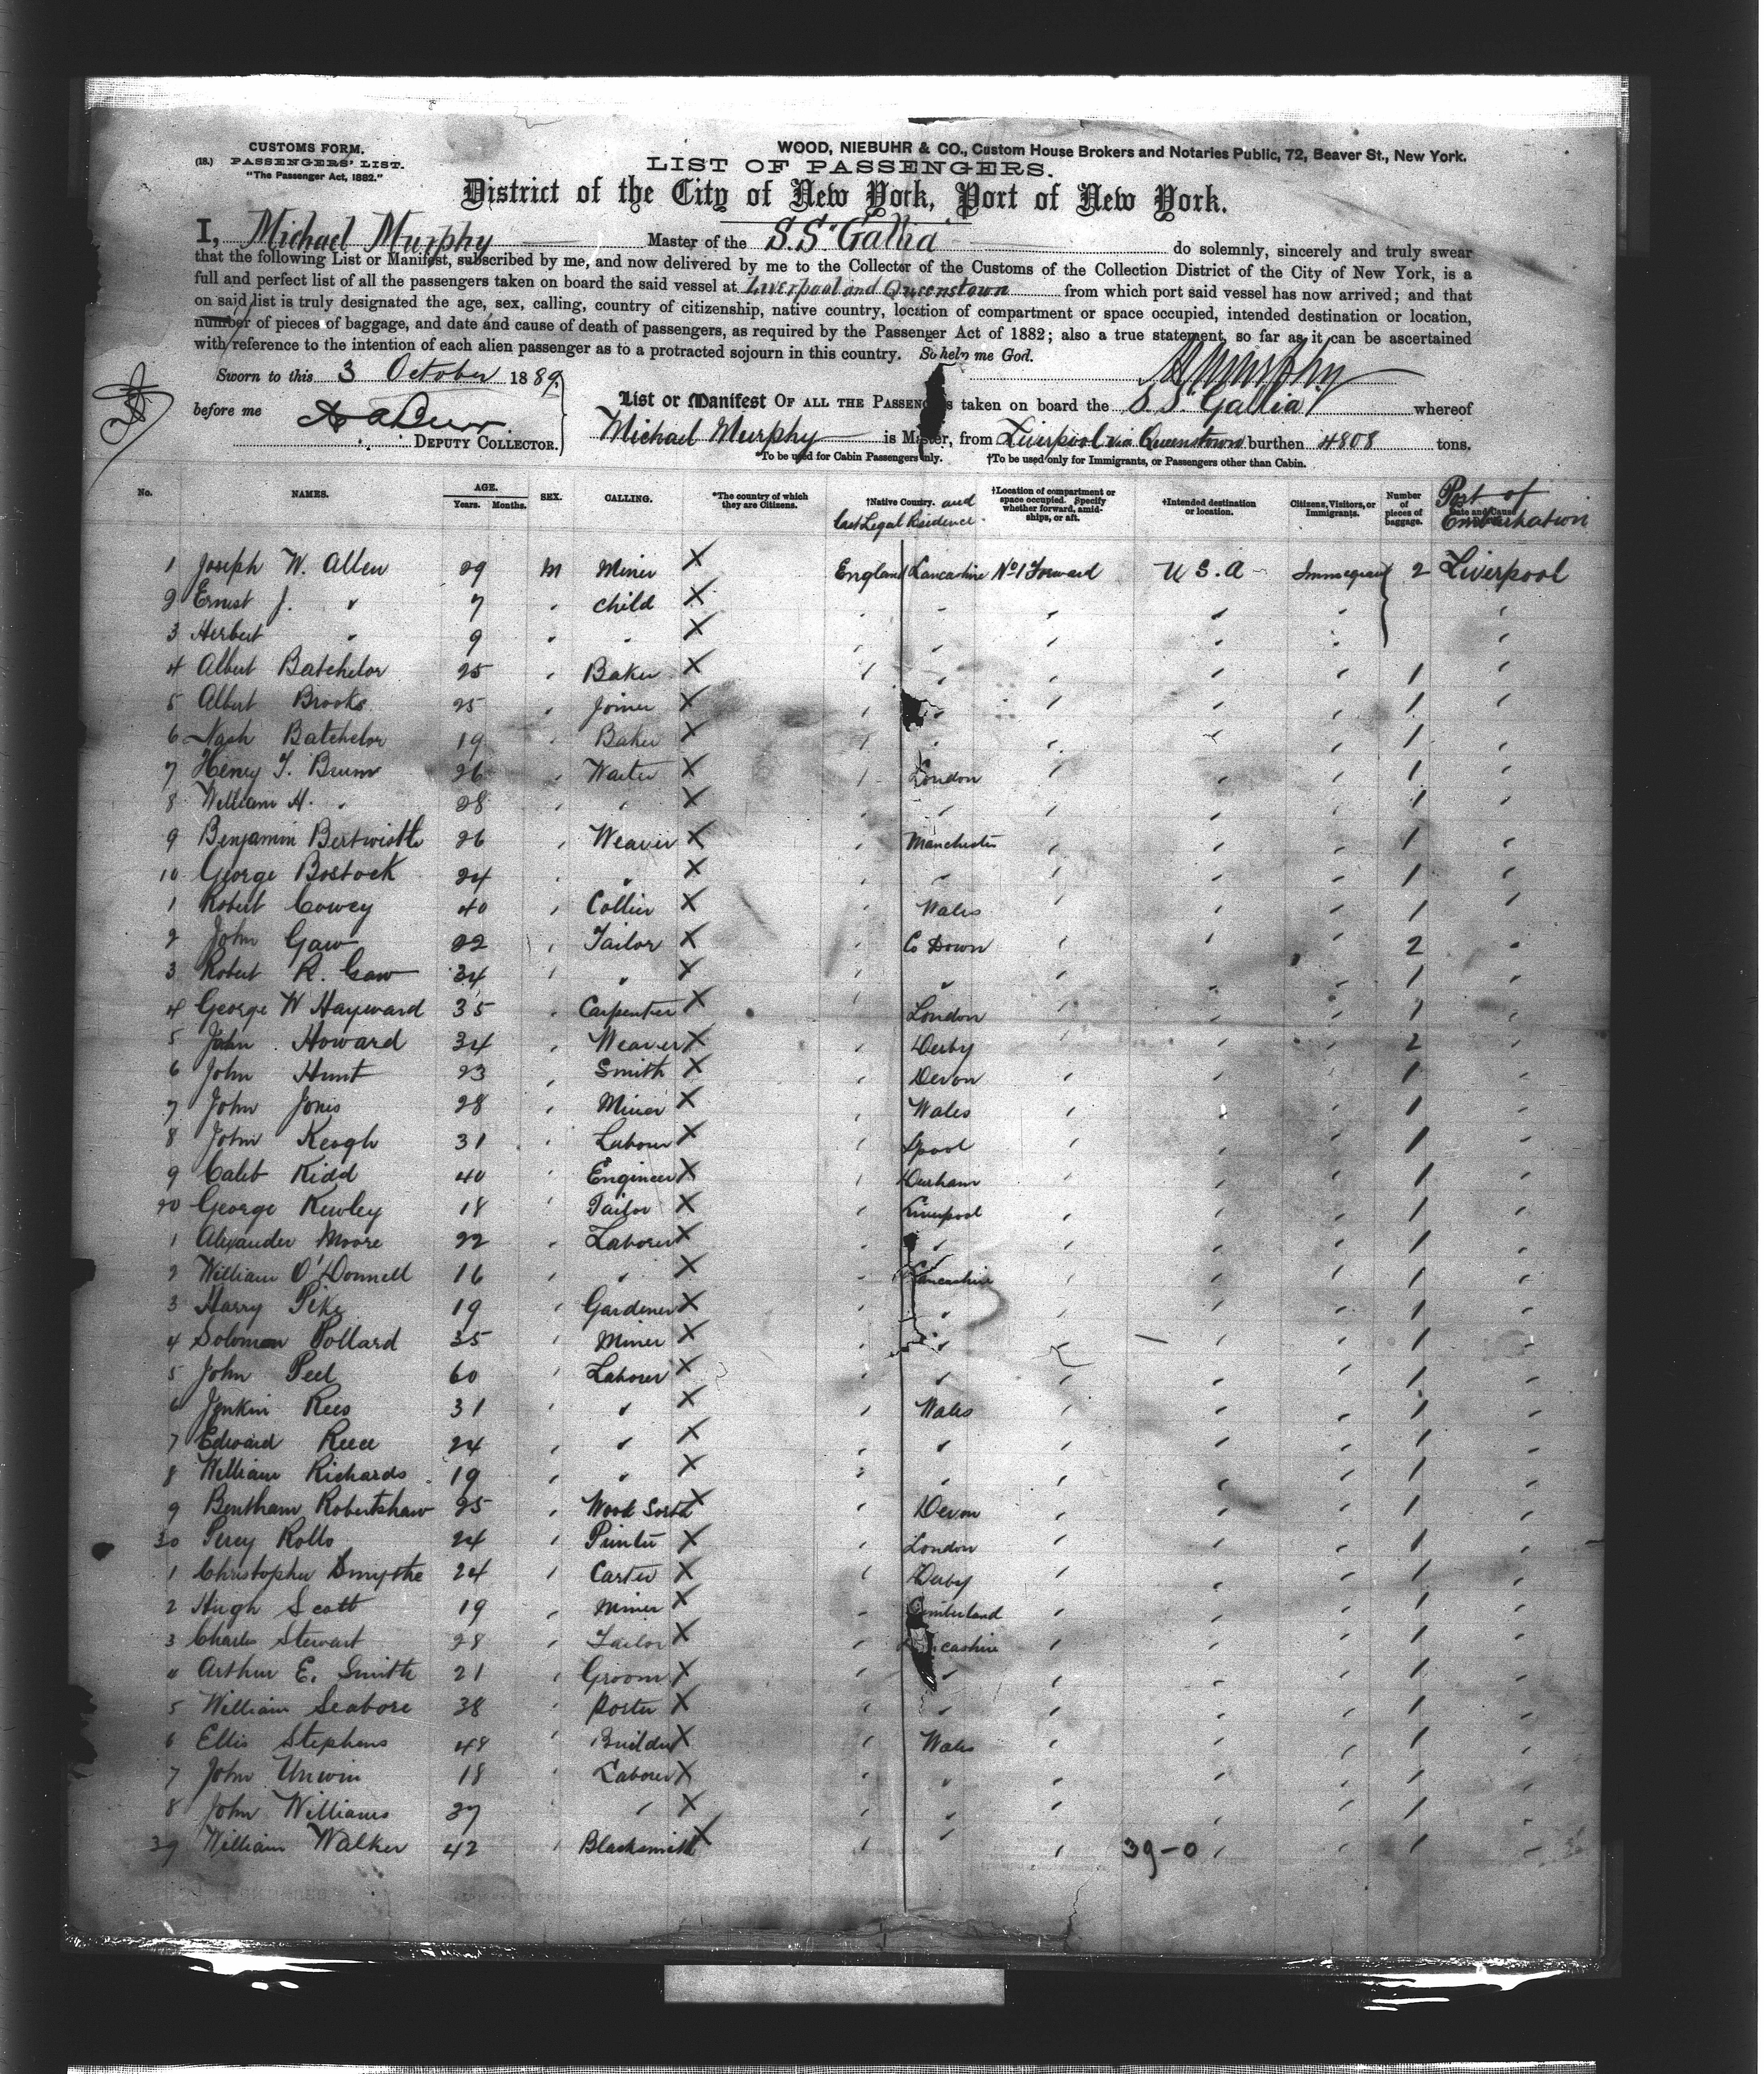 CUSTOMS FORM.
(18.) PASSENGERS' LIST.
"The Passenger Act, 1882."
WOOD, NIEBUHR & CO., Custom House Brokers and Notaries Public, 72, Beaver St., New York.
LIST OF PASSENGERS.
District of the City of New York, Port of New York.
I, Michael Murphy Master of the S.S "Gallia" do solemnly, sincerely and truly swear
that the following List or Manifest, subscribed by me, and now delivered by me to the Collector of the Customs of the Collection District of the City of New York, is a
full and perfect list of all the passengers taken on board the said vessel at Liverpool and Queenstown from which port said vessel has now arrived; and that
on said list is truly designated the age, sex, calling, country of citizenship, native country, location of compartment or space occupied, intended destination or location,
number of pieces of baggage, and date and cause of death of passengers, as required by the Passenger Act of 1882; also a true statement, so far as it can be ascertained
with reference to the intention of each alien passenger as to a protracted sojourn in this country. So help me God.
Sworn to this 3 October 1889 M Murphy
before me
DEPUTY COLLECTOR.
List or Manifest OF ALL THE PASSENGERS taken on board the S.S "Gallia" whereof
Michael Murphy is Master, from Liverpool via Queenstown burthen 4808 tons.
*To be used for Cabin Passengers only. †To be used only for Immigrants, or Passengers other than Cabin.
No. NAMES. AGE. Years. Months. SEX. CALLING. *The country of which they are Citizens. †Native Country. and last Legal Residence. †Location of compartment or space occupied. Specify whether forward, amidships, or aft. †Intended destination or location. Citizens, Visitors, or Immigrants. Number of pieces of baggage. Port of Embarkation
1 Joseph W. Allen 29 M Miner X England Lancashire No 1 Forward U S. A Immigrant 2 Liverpool
2 Ernest J. " 7 " child X " " " " " "
3 Herbert " 9 " " X " " " " " "
4 Albert Batchelor 25 " Baker X " " " " " 1 "
5 Albert Brooks 25 " Joiner X " " " " " 1 "
6 Nash Batchelor 19 " Baker X " " " " " 1 "
7 Henry J. Brum 26 " Waiter X " London " " " 1 "
8 William H. " 28 " " X " " " " " 1 "
9 Benjamin Bertwistle 26 " Weaver X " Manchester " " " 1 "
10 George Bostock 24 " " X " " " " " 1 "
1 Robert Cowey 40 " Collier X " Wales " " " 1 "
2 John Gaw 22 " Tailor X " Co Down " " " 2 "
3 Robert R. Gaw 34 " " X " " " " " 1 "
4 George W Hayward 35 " Carpenter X " London " " " 1 "
5 John Howard 34 " Weaver X " Derby " " " 2 "
6 John Hunt 23 " Smith X " Devon " " " 1 "
7 John Jones 28 " Miner X " Wales " " " 1 "
8 John Keogh 31 " Laborer X " Lpool " " " 1 "
9 Caleb Kidd 40 " Engineer X " Durham " " " 1 "
20 George Kewley 18 " Tailor X " Liverpool " " " 1 "
1 Alexander Moore 22 " Laborer X " " " " " 1 "
2 William O'Donnell 16 " " X " Lancashire " " " 1 "
3 Harry Pike 19 " Gardener X " " " " " 1 "
4 Solomon Pollard 35 " Miner X " " " " " 1 "
5 John Peel 60 " Laborer X " " " " " 1 "
6 Jenkin Rees 31 " " X " Wales " " " 1 "
7 Edward Reece 24 " " X " " " " " 1 "
8 William Richards 19 " " X " " " " " 1 "
9 Bentham Robertshaw 25 " Wool Sorter X " Devon " " " 1 "
30 Percy Rollo 24 " Printer X " London " " " 1 "
1 Christopher Smythe 24 " Carter X " Derby " " " 1 "
2 Hugh Scott 19 " Miner X " Cumberland " " " 1 "
3 Charles Stewart 28 " Tailor X " Lancashire " " " 1 "
4 Arthur E. Smith 21 " Groom X " " " " " 1 "
5 William Seabore 38 " Porter X " " " " " 1 "
6 Ellis Stephens 48 " Builder X " Wales " " " 1 "
7 John Unwin 18 " Laborer X " " " " " 1 "
8 John Williams 27 " " X " " " " " 1 "
39 William Walker 42 " Blacksmith X " " " 39-0 " " 1 "